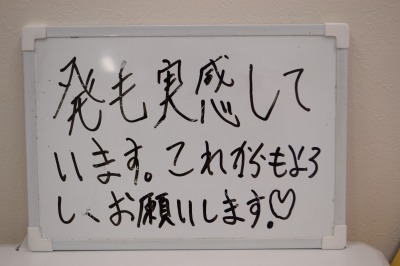 発毛実感して
います。これからもよろ
しくお願いします!♡